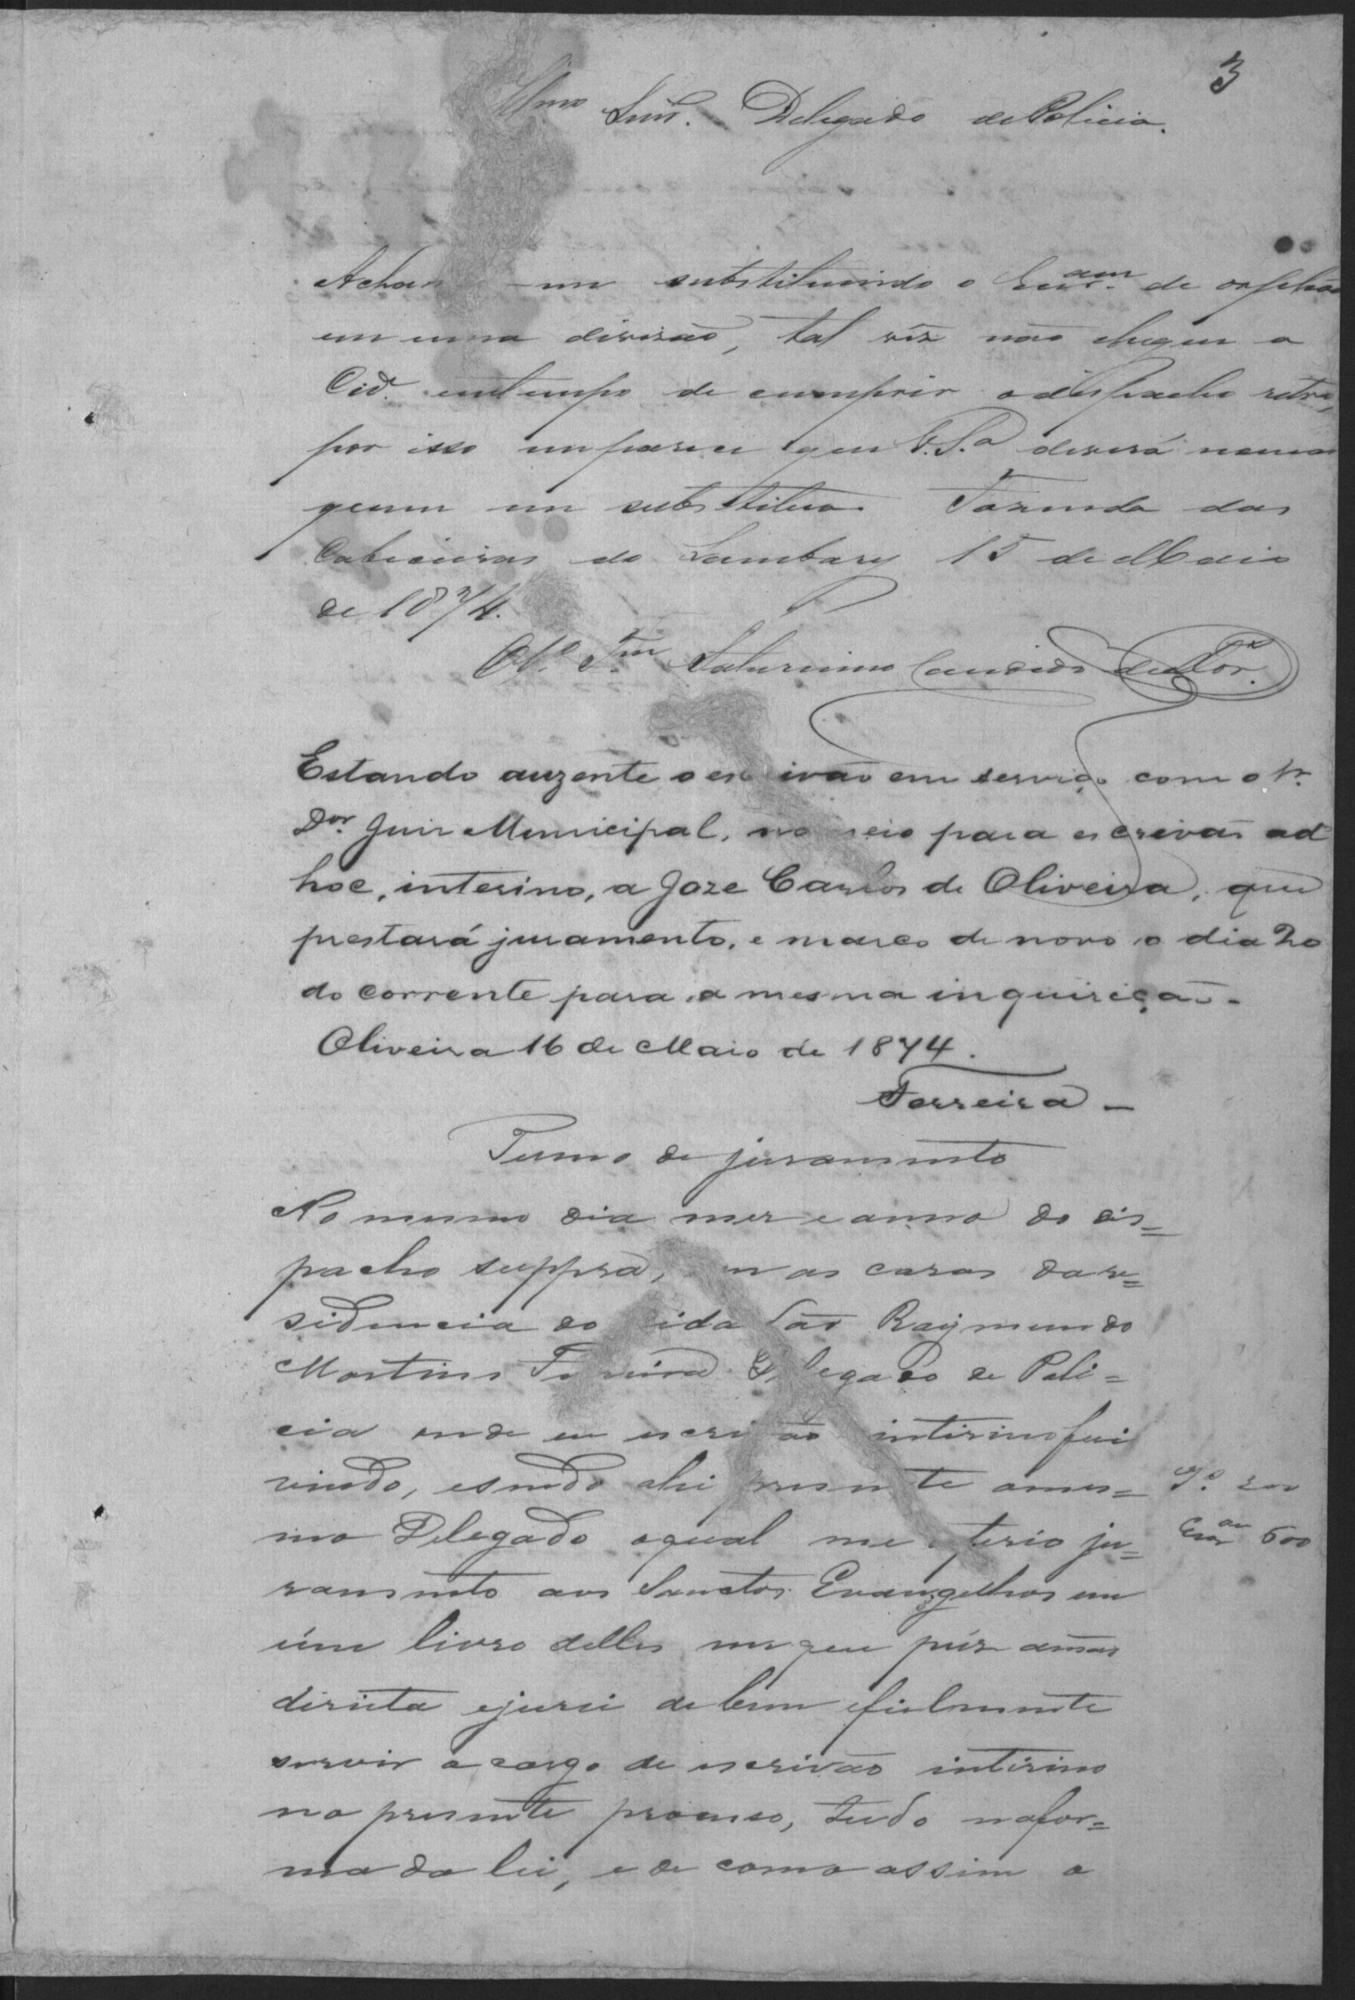 3
Illmo Snr. Delegado de Policia.
Achan -me substituindo o de orfeháos
em uma divizaõ, tal vêz naõ chegue a
Cid.e emtempo de cumprir odespacho retro,
por isso meparece que V.S.a deverá nomiar
quem me substitua. Fazenda das
Cabiceiras do Lambary 15 de Maio
de 1874.
Saturnino Candido de
Estando auzente o es ivaõ em serviço com o Sr.
Dor. Juiz Municipal, no meio para escrivaõ ad
hoc, interino, a Joze Carlos de Oliveira, que
prestará juramento, e marco de novo o dia 20
do corrente para a mesma inquiriçaõ.
Oliveira 16 de Maio de 1874.
Ferreira
Termo de juramento
No mesmo dia mez e anno do des=
pacho suppra, em as cazas dare=
sidencia do Cida daõ Raymundo
Martins Ferreira Delegado de Poli=
cia onde eu escri aõ intirino fui
vindo, esendo ahi presente omes=
mo Delegado oqual me deferio ju=
ramento aos Sanctos Evangelhos em
úm livro delles em que púz amaõ
direita ejurei de bem efielmente
servir o cargo de escrivaõ intirino
no presente processo, tudo nafor=
ma da lei, e de como assim o
J.o 200
Escr.am 500